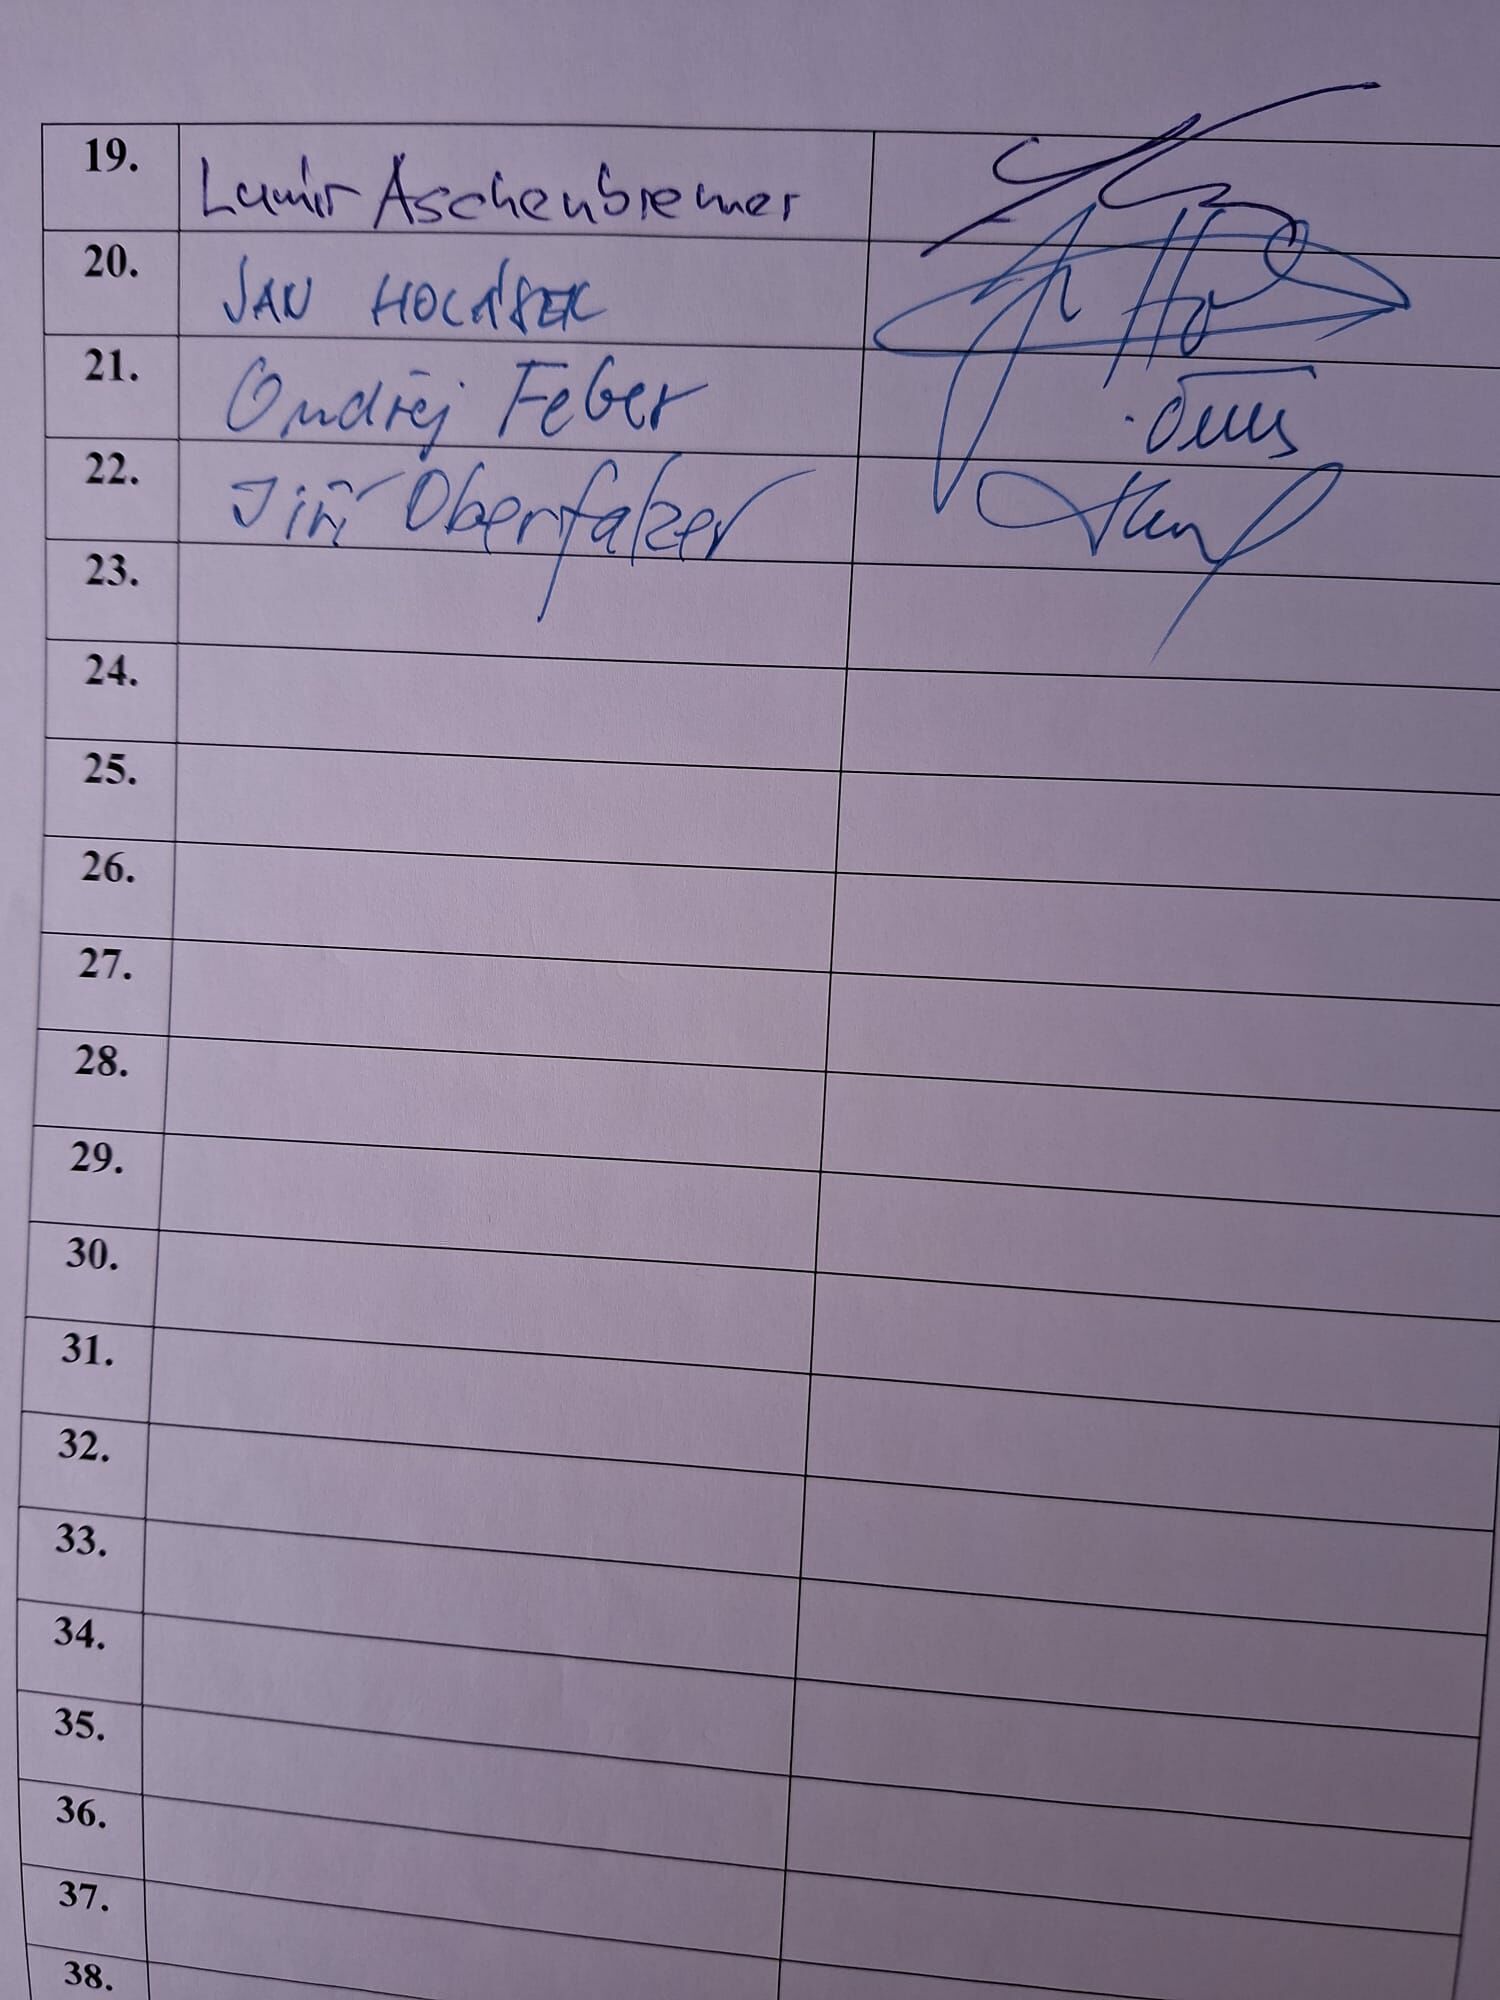 19. Lumír Aschenbrenner
20. JAN HOLÁSEK
21. Ondřej Feber
22. Jiří Oberfalzer
23.
24.
25.
26.
27.
28.
29.
30.
31.
32.
33.
34.
35.
36.
37.
38.